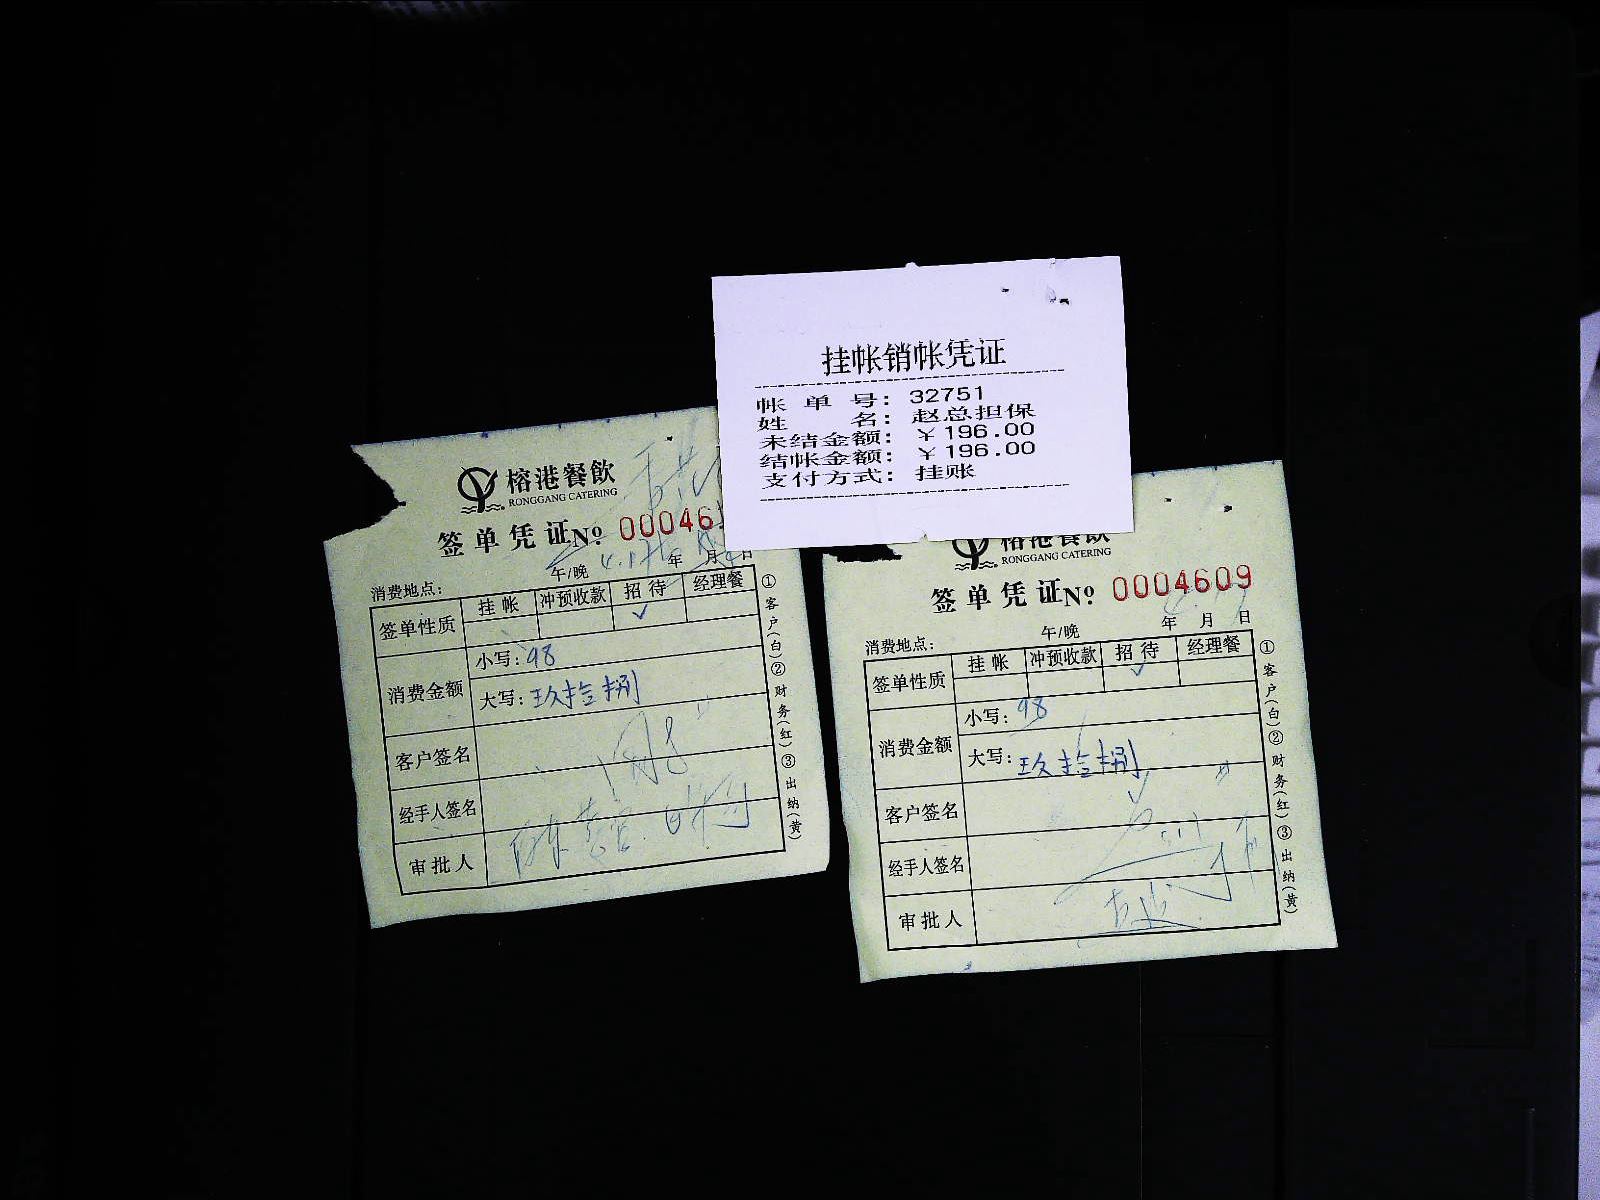 挂帐销帐凭证
帐单号: 32751
姓名: 赵总担保
未结金额: ￥196.00
结帐金额: ￥196.00
支付方式: 挂账
榕港餐飲
RONGGANG CATERING
签单凭证 No. 00046
年 月 日
消费地点: 午/晚
签单性质 挂帐 冲预收款 招待 经理餐
✓
消费金额 小写: 98
大写: 玖拾捌
客户签名
经手人签名
审批人
①客户(白)②财务(红)③出纳(黄)
榕港餐飲
RONGGANG CATERING
签单凭证 No. 0004609
年 月 日
消费地点: 午/晚
签单性质 挂帐 冲预收款 招待 经理餐
✓
消费金额 小写: 98
大写: 玖拾捌
客户签名
经手人签名
审批人
①客户(白)②财务(红)③出纳(黄)